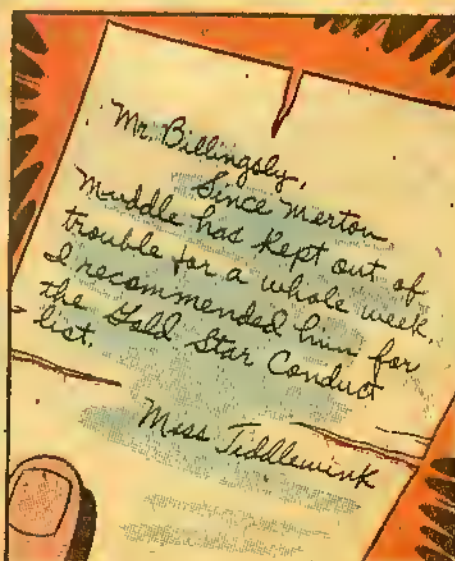 Mr. Billingsly,
Since Merton
Muddle has kept out of
trouble for a whole week,
I recommended him for
the Gold Star Conduct
list.
Miss Tiddlewink